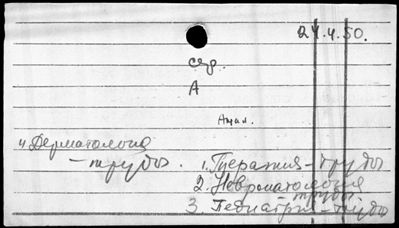 24.4.50.
А
Анал.
4. Дерматология
- труды.
1. Терапия - труды
2. Невропатология
- труды.
3. Педиатрия - труды